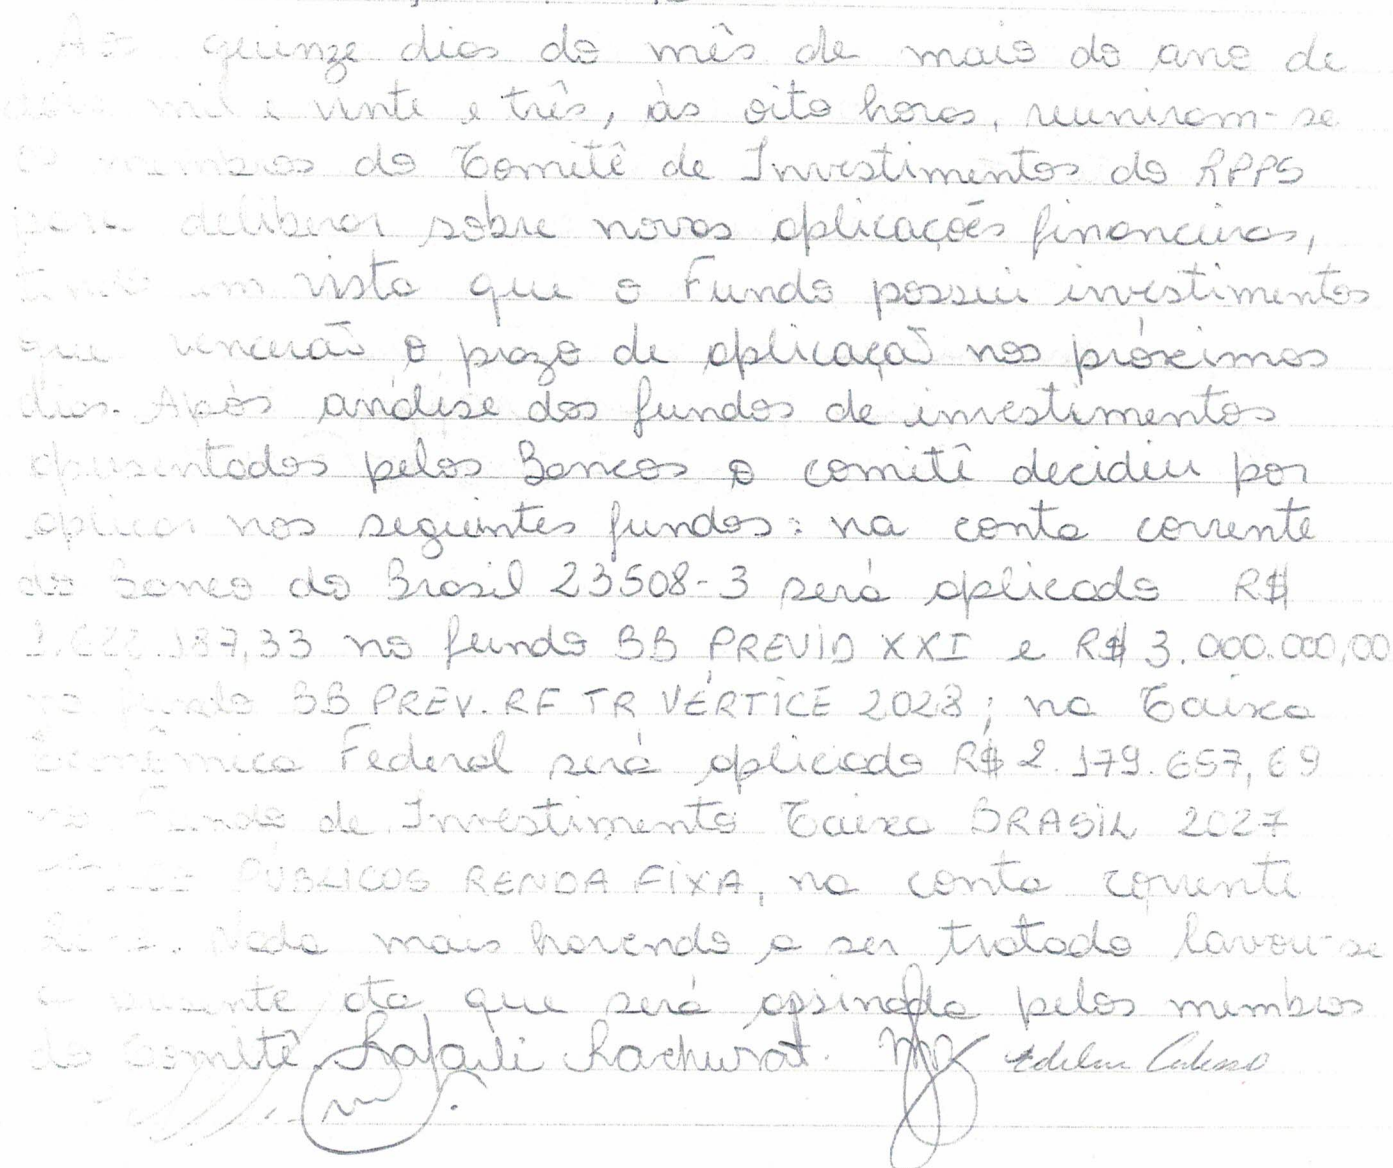 Aos quinze dias do mês de maio do ano de
dois mil e vinte e três, às oito horas, reuniram-se
os membros do Comitê de Investimentos do RPPS
para deliberar sobre novas aplicações financeiras,
tendo em vista que o Fundo possui investimentos
que vencerão o prazo de aplicação nos próximos
dias. Após análise dos fundos de investimentos
apresentados pelos Bancos o comitê decidiu por
aplicar nos seguintes fundos: na conta corrente
do Banco do Brasil 23508-3 será aplicado R$
no fundo BB PREVID XXI e R$ 3.000.000,00
no fundo BB PREV. RF TR VÉRTICE 2028; na Caixa
Econômica Federal será aplicado R$ 2.179.657,69
no Fundo de Investimento Caixa BRASIL 2027
PÚBLICOS RENDA FIXA, na conta corrente
Nada mais havendo a ser tratado lavou-se
a presente ata que será assinada pelos membros
do Comitê.